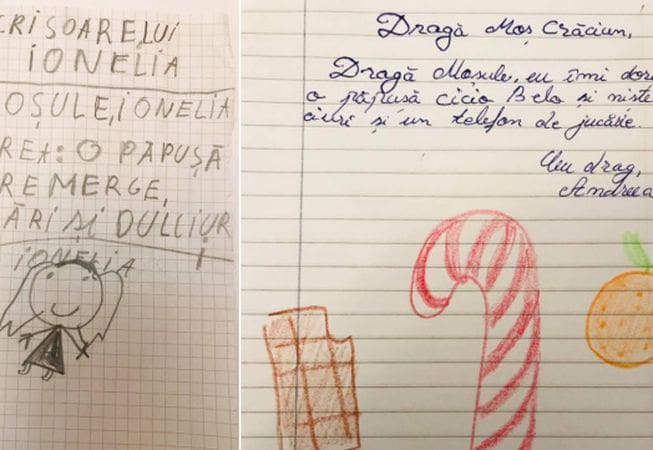 CRISOARELUI
IONELIA
OȘULE, IONELIA
REA: O PĂPUȘĂ
RE MERGE,
ĂRI ȘI DULCIUR
I
IONELIA
Dragă Moș Crăciun,
Dragă Moșule, eu îmi dor
o păpușă cicio Belo și niste
ciuri și un telefon de jucărie.
Cu drag,
Andreea